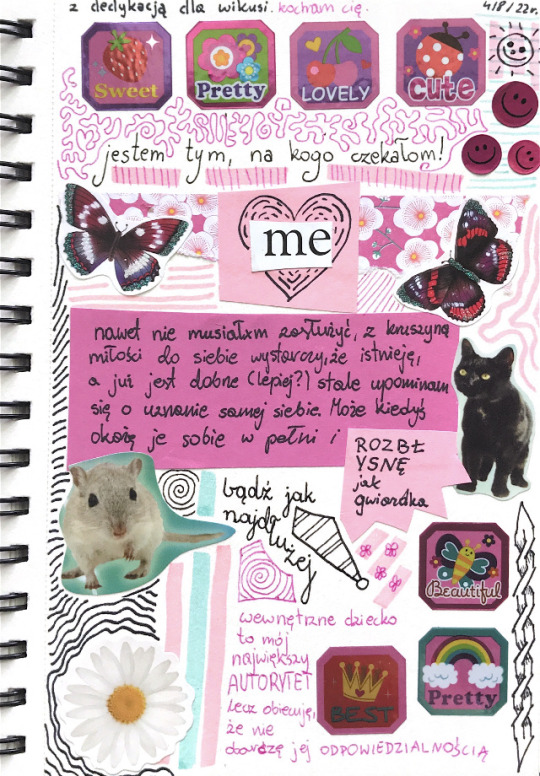 z dedykacją dla wikusi. kocham cię.
4/8/22r.
Sweet
Pretty
LOVELY
cute
jestem tym, na kogo czekałom!
me
nawet nie musiałxm zasłużyć, z kruszyną
miłości do siebie wystarczy, że istnieję,
a już jest dobrze (lepiej?) stale upominam
się o uznanie samej siebie. Może kiedyś
okażę je sobie w pełni i
ROZBŁ
YSNĘ
jak
gwiazdka
bądź jak
najdłużej
Beautiful
wewnętrzne dziecko
to mój
największy
AUTORYTET
Lecz obiecuję,
że nie
obarczę jej ODPOWIEDZIALNOŚCIĄ
BEST
Pretty